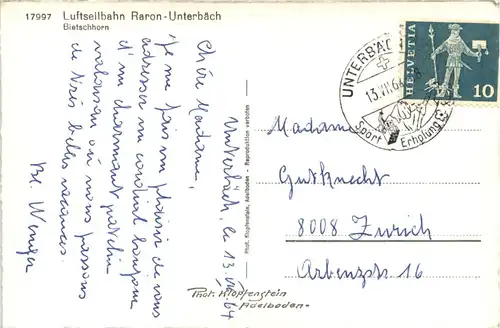 17997 Luftseilbahn Raron-Unterbäch
Bietschhorn
Unterbäch, le 13. VII. 64
Chère Madame,
Je me fais un plaisir de vous
adresser un cordial bonjour
d'un charmant patelin
valaisan où nous passons
de très belles vacances.
Bl. Wenger
Phot. Klopfenstein, Adelboden - Reproduktion verboten
Phot. Klopfenstein
Adelboden
UNTERBÄCH
13.VII.64
Sport
Erholung
HELVETIA
10
Madame
Gutknecht
8008 Zürich
Arbenzstr. 16